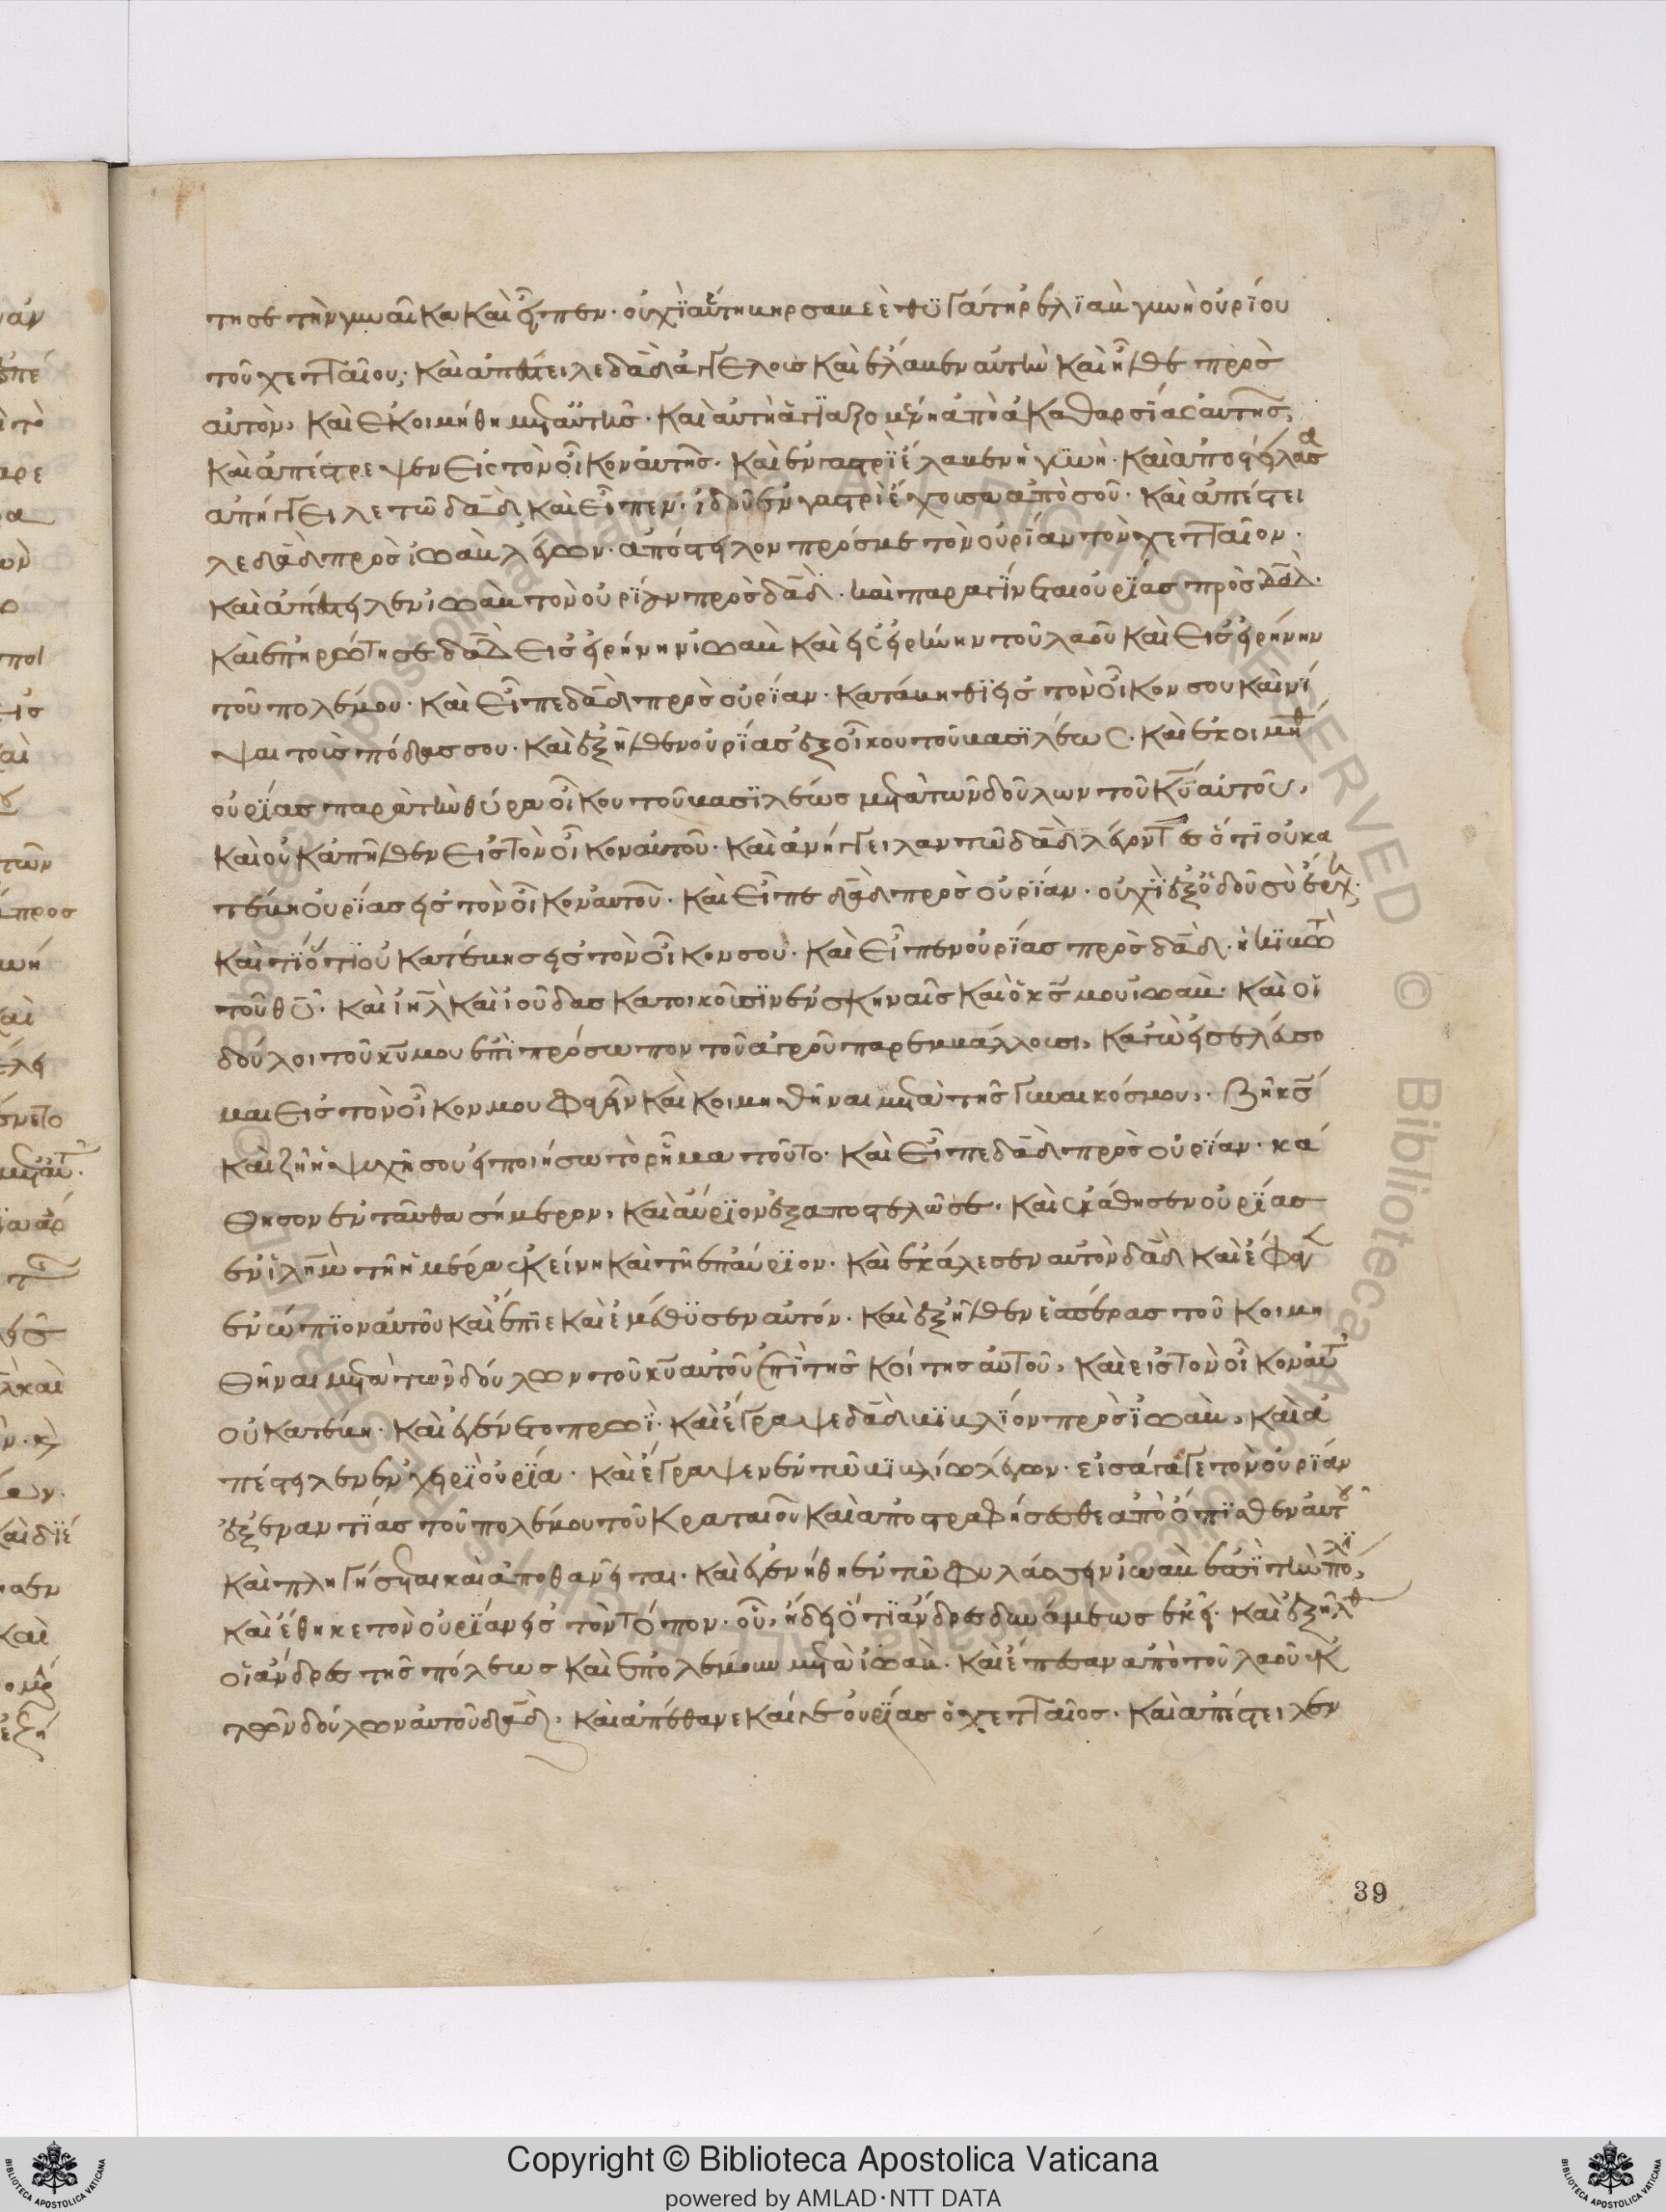 τησε τὴν γυναῖκα καὶ εἶπεν· οὐχὶ αὕτη βηρσαβεὲ θυγάτηρ ἐλιὰβ γυνὴ οὐρίου
τοῦ χετταίου; καὶ ἀπέστειλε δᾱδ ἀγγέλους καὶ ἔλαβεν αὐτὴν καὶ ἦλθε πρὸς
αὐτὸν, καὶ ἐκοιμήθη μετ' αὐτῆς· καὶ αὐτὴ ἁγιαζομένη ἀπὸ ἀκαθαρσίας αὐτῆς,
καὶ ἀπέστρεψεν εἰς τὸν οἶκον αὐτῆς· καὶ ἐν γαστρὶ ἔλαβεν ἡ γυνή· καὶ ἀποστείλασα
ἀπήγγειλε τῶ δᾱδ καὶ εἶπεν· ἰδοὺ ἐν γαστρὶ ἔχουσα ἀπὸ σοῦ· καὶ ἀπέστει
λε δᾱδ πρὸς ἰωὰβ λέγων· ἀπόστειλον πρός με τὸν οὐρίαν τὸν χετταῖον·
καὶ ἀπέστειλεν ἰωὰβ τὸν οὐρίαν πρὸς δᾱδ· καὶ παραγίνεται οὐρίας πρὸς δᾱδ·
καὶ ἐπηρώτησε δᾱδ εἰς εἰρήνην ἰωὰβ καὶ εἰς εἰρήνην τοῦ λαοῦ καὶ εἰς εἰρήνην
τοῦ πολέμου· καὶ εἶπε δᾱδ πρὸς οὐρίαν· κατάβηθι εἰς τὸν οἶκον σου καὶ νί
ψαι τοὺς πόδας σου· καὶ ἐξῆλθεν οὐρίας ἐξ οἴκου τοῦ βασιλέως· καὶ ἐκοιμήθ
οὐρίας παρὰ τὴν θύρα οἴκου τοῦ βασιλέως μετὰ τῶν δούλων τοῦ κ̄υ αὐτοῦ,
καὶ οὐκ ἀπῆλθεν εἰς τὸν οἶκον αὐτοῦ· καὶ ἀνήγγειλαν τῶ δᾱδ λέγοντες ὅτι οὐ κα
τέβη οὐρίας εἰς τὸν οἶκον αὐτοῦ· καὶ εἶπε δᾱδ πρὸς οὐρίαν· οὐχὶ ἐξ ὁδοῦ σὺ ἔρχ
καὶ τί ὅτι οὐ κατέβης εἰς τὸν οἶκον σου· καὶ εἶπεν οὐρίας πρὸς δᾱδ· ἡ κιβωτ
τοῦ θ̄υ· καὶ ιη̄λ καὶ ἰούδας κατοικοῦσιν ἐν σκηναῖς καὶ ὁ κ̄ς μου ἰωάβ· καὶ οἱ
δοῦλοι τοῦ κ̄υ μου ἐπὶ πρόσωπον τοῦ ἀγροῦ παρεμβάλλουσι, κἀγὼ εἰσελεύσο
μαι εἰς τὸν οἶκον μου φαγεῖν καὶ κοιμηθῆναι μετὰ τῆς γυναικός μου; ζῆ κ̄ς
καὶ ζῆ ἡ ψυχή σου εἰ ποιήσω τὸ ῥῆμα τοῦτο· καὶ εἶπε δᾱδ πρὸς οὐρίαν· κά
θησον ἐνταῦθα σήμερον, καὶ αὔριον ἐξαποστελῶ σε· καὶ ἐκάθησεν οὐρίας
ἐν ἰλη̄μ τῆ ἡμέρα ἐκείνη καὶ τῆ ἐπαύριον· καὶ ἐκάλεσεν αὐτὸν δᾱδ καὶ ἔφαγ
ἐνώπιον αὐτοῦ καὶ ἔπιε καὶ ἐμέθυσεν αὐτόν· καὶ ἐξῆλθεν ἑσπέρας τοῦ κοιμη
θῆναι μετὰ τῶν δούλων τοῦ κ̄υ αὐτοῦ ἐπὶ τῆς κοίτης αὐτοῦ, καὶ εἰς τὸν οἶκον αὐτ
οὐ κατέβη· καὶ ἐγένετο πρωῒ· καὶ ἔγραψε δᾱδ βιβλίον πρὸς ἰωάβ, καὶ ἀ
πέστειλεν ἐν χειρὶ οὐρία· καὶ ἔγραψεν ἐν τῶ βιβλίω λέγων· εἰσάγαγε τὸν οὐρίαν
ἐξεναντίας τοῦ πολέμου τοῦ κραταιοῦ καὶ ἀποστραφήσεσθε ἀπὸ ὄπισθεν αὐτοῦ
καὶ πληγήσεται καὶ ἀποθανεῖται· καὶ ἐγενήθη ἐν τῶ φυλάσσειν ἰωὰβ ἐπὶ τὴν πόλι
καὶ ἔθηκε τὸν οὐρίαν εἰς τὸν τόπον· οὗ ἤδει ὅτι ἄνδρες δυνάμεως ἐκεῖ· καὶ ἐξῆλθ
οἱ ἄνδρες τῆς πόλεως καὶ ἐπολέμουν μετὰ ἰωάβ· καὶ ἔπεσαν ἀπὸ τοῦ λαοῦ ἐκ
τῶν δούλων αὐτοῦ δᾱδ, καὶ ἀπέθανε καί γε οὐρίας ὁ χετταῖος· καὶ ἀπέστειλεν
39
© Biblioteca Apostolica Vaticana ALL RIGHTS RESERVED
Copyright © Biblioteca Apostolica Vaticana
powered by AMLAD·NTT DATA
BIBLIOTECA APOSTOLICA VATICANA
BIBLIOTECA APOSTOLICA VATICANA